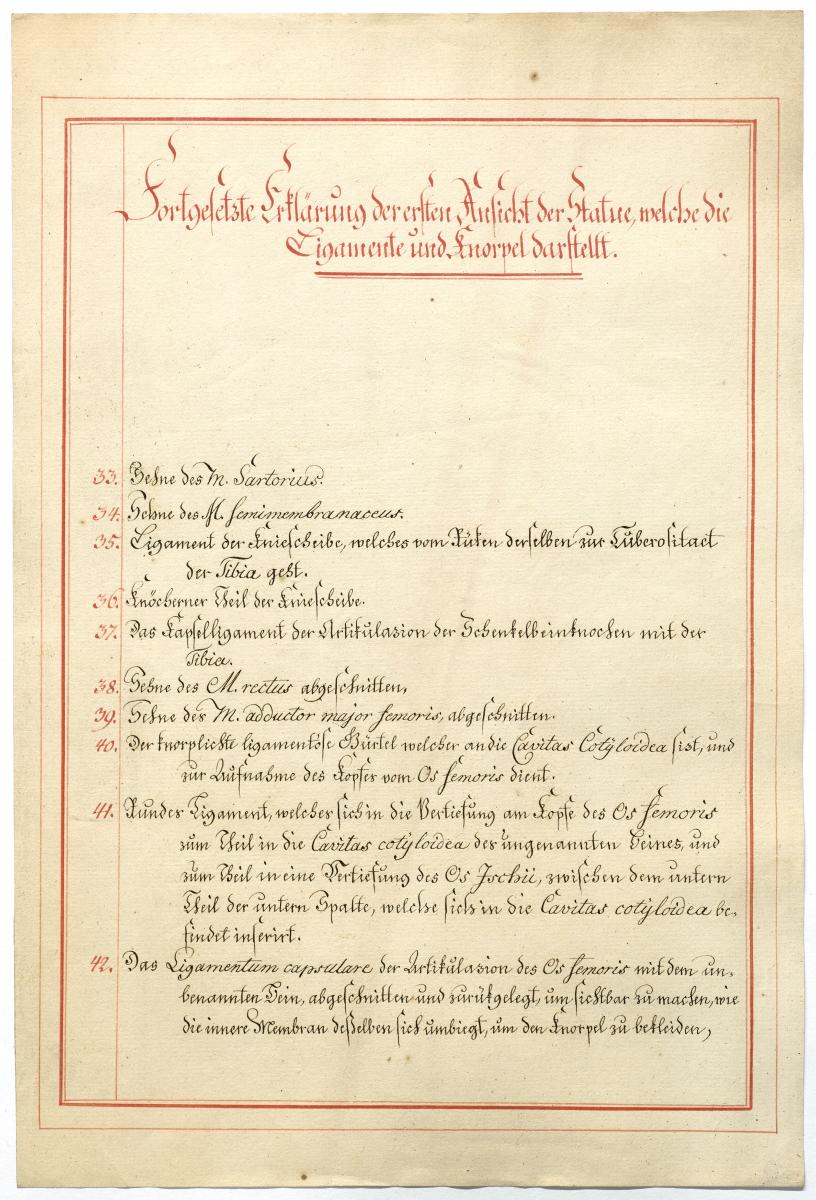 Fortgesetzte Erklärung der ersten Ansicht der Statue, welche die
Ligamente und Knorpel darstellt.
33. Sehne des M. Sartorius.
34. Sehne des M. semimembranaceus.
35. Ligament der Kniescheibe, welches vom Rüken derselben zur Tuberositaet
der Tibia geht.
36. Knöcherner Theil der Kniescheibe.
37. Das Kapselligament der Artikulazion der Schenkelbeinknochen mit der
Tibia.
38. Sehne des M. rectus abgeschnitten,
39. Sehne des M. adductor major femoris, abgeschnitten.
40. Der knorplichte ligamentöse Gürtel welcher an die Cavitas Cotyloidea sist, und
zur Aufnahme des Kopfes vom Os femoris dient.
41. Rundes Ligament, welches sich in die Vertiefung am Kopfe des Os femoris
zum Theil in die Cavitas cotyloidea des ungenannten Beines, und
zum Theil in eine Vertiefung des Os Ischii, zwischen dem untern
Theil der untern Spalte, welche sich in die Cavitas cotyloidea be-
findet inserirt.
42. Das Ligamentum capsulare der Artikulazion des Os femoris mit dem un-
benannten Bein, abgeschnitten und zurükgelegt, um sichtbar zu machen, wie
die innere Membran desselben sich umbiegt, um den Knorpel zu bekleiden,